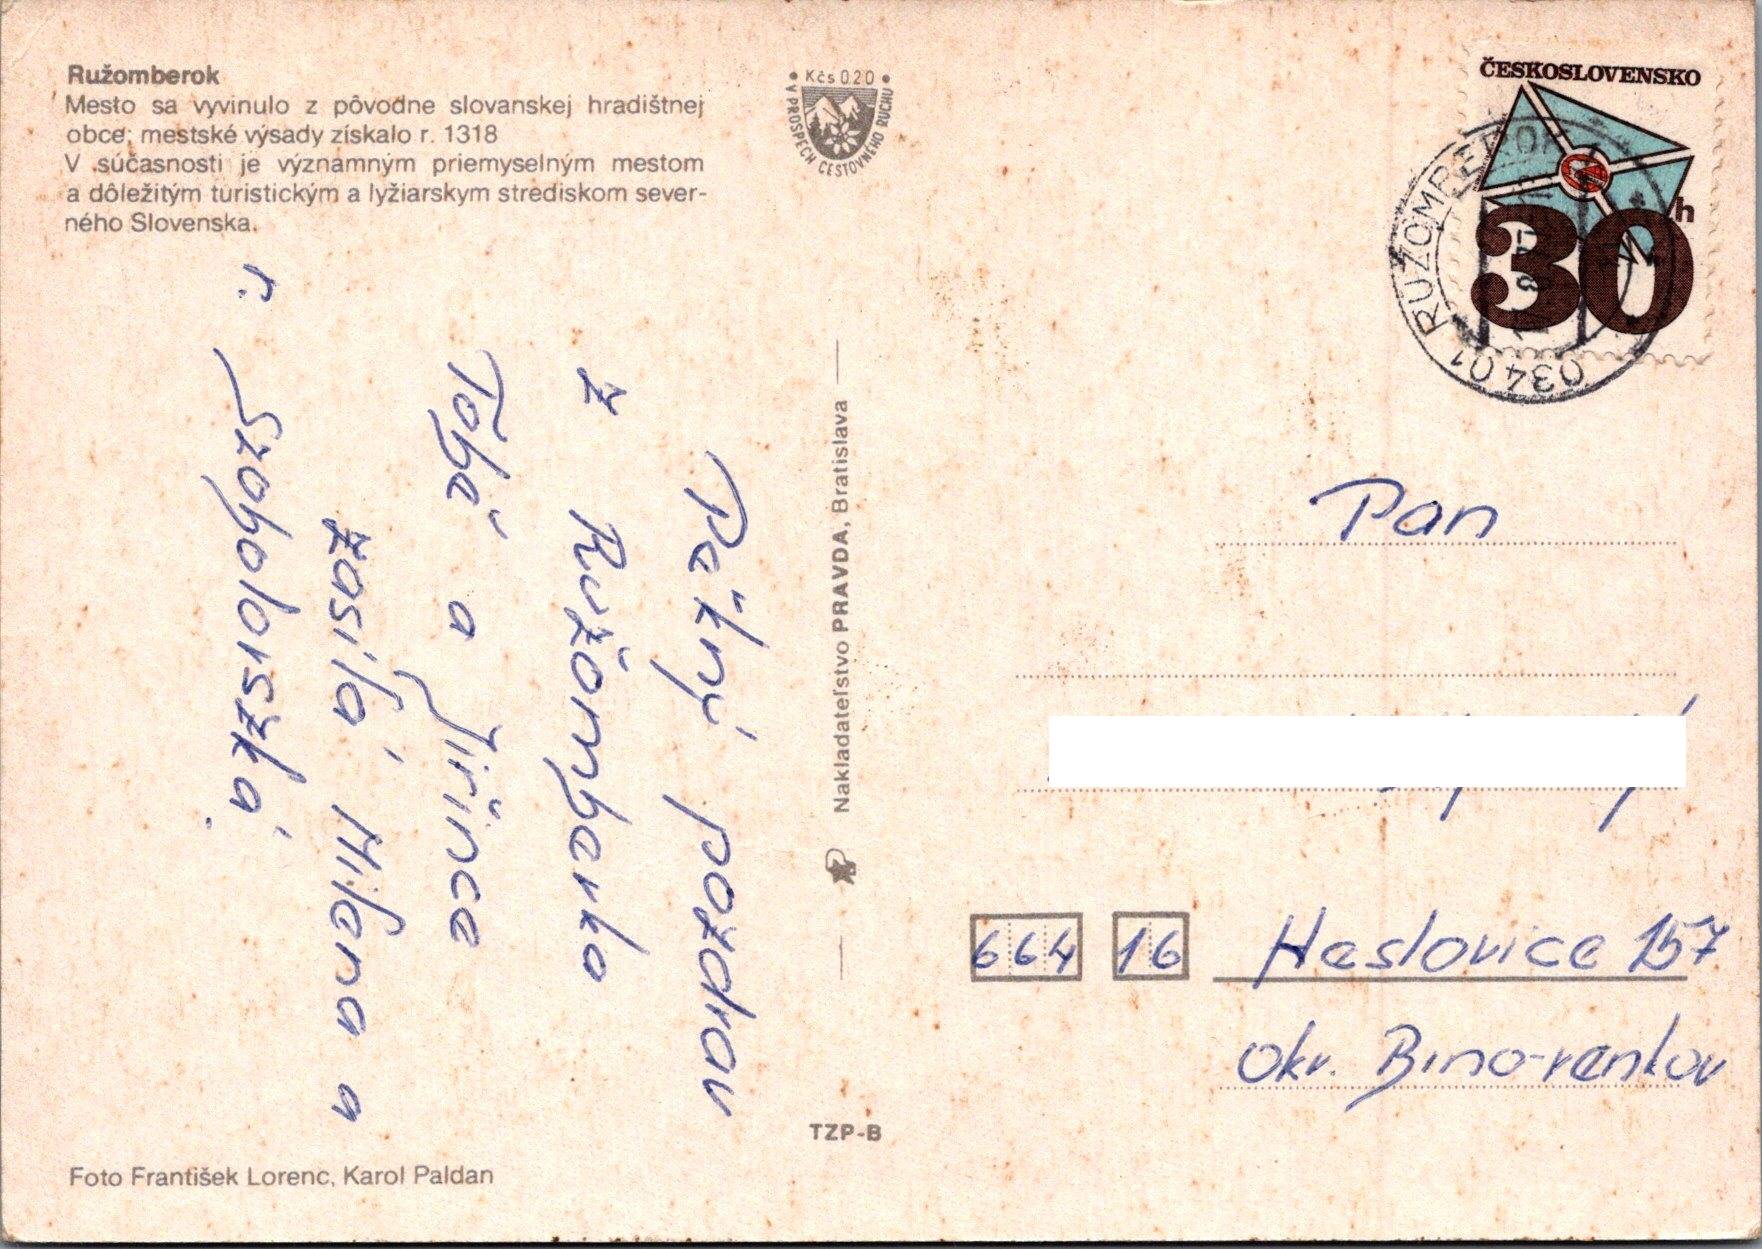 Ružomberok
Mesto sa vyvinulo z pôvodne slovanskej hradištnej
obce; mestské výsady získalo r. 1318
V súčasnosti je významným priemyselným mestom
a dôležitým turistickým a lyžiarskym strediskom sever-
ného Slovenska.
Kčs 0,20
V PROSPECH CESTOVNÉHO RUCHU
ČESKOSLOVENSKO
30h
034 01 RUŽOMBEROK
Pěkný pozdrav
z Ružomberka
Tobě a Jiřince
zasílá Milena a
r. Szobolorszká.
Nakladateľstvo PRAVDA, Bratislava
Pan
664 16 Haslovice 157
okr. Brno-venkov
TZP-B
Foto František Lorenc, Karol Paldan